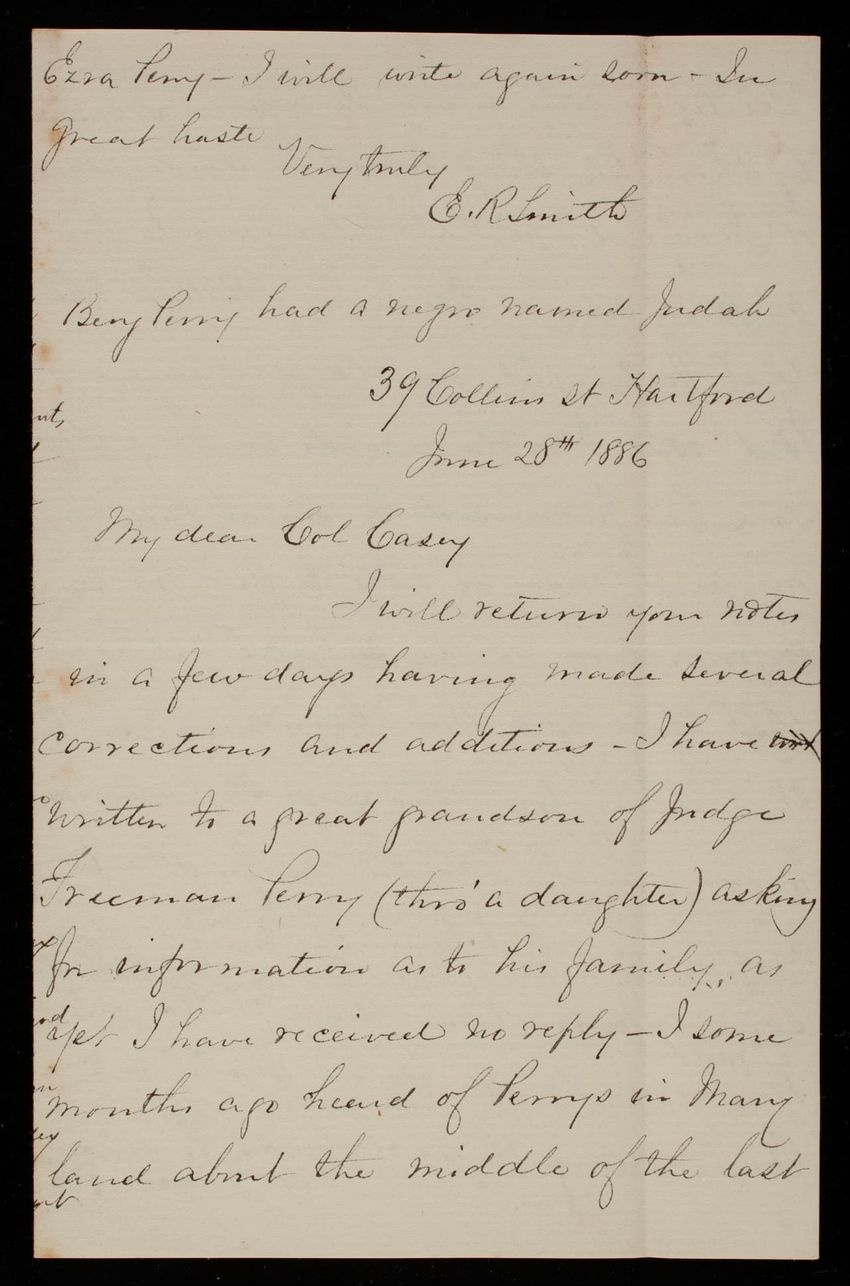 Ezra Perry - I will write again soon - In
great haste
Very truly
E. R Smith
Benj Perry had a negro named Judah
39 Collins St Hartford
June 28th 1886
My dear Col Casey
I will return your notes
in a few days having made several
corrections and additions - I have
written to a great grandson of Judge
Freeman Perry (thro' a daughter) asking
for information as to his family, as
yet I have received no reply - I some
months ago heard of Perrys in Mary
land about the middle of the last